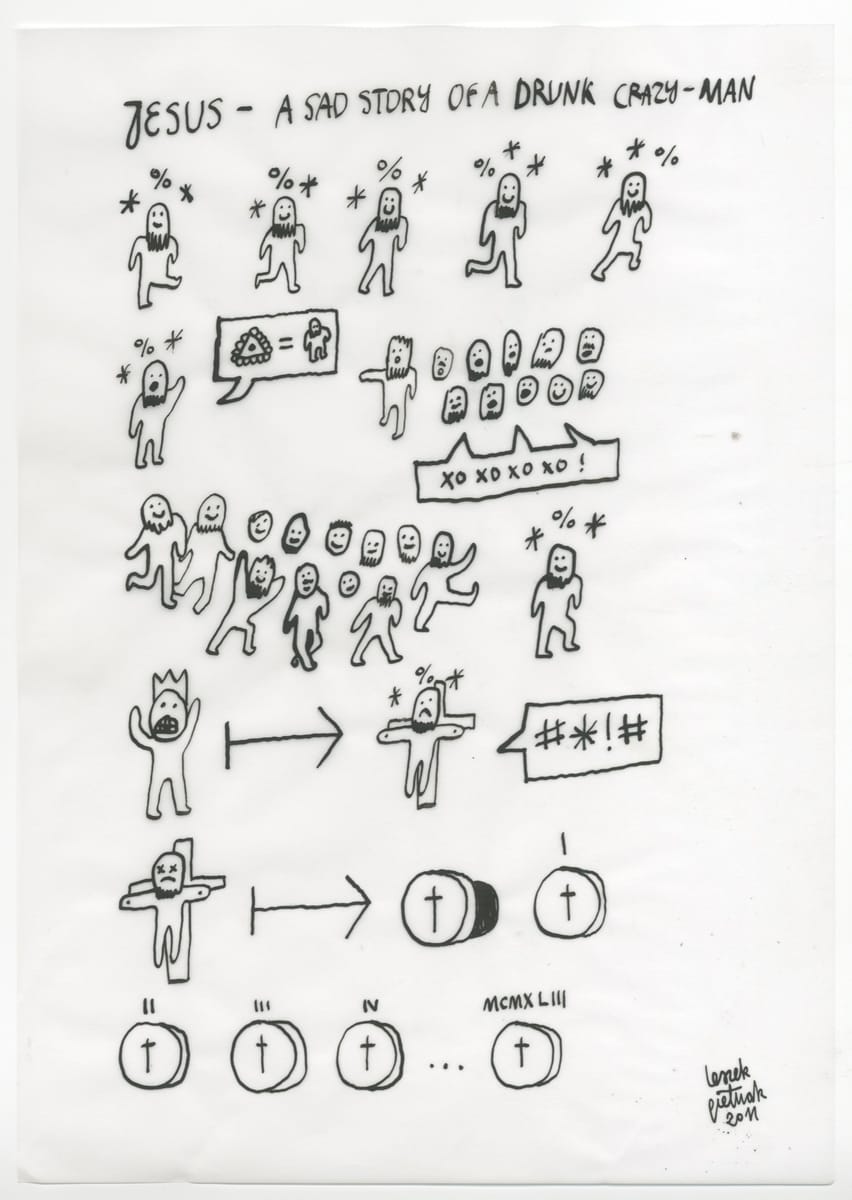 JESUS - A SAD STORY OF A DRUNK CRAZY-MAN
* % *
* % *
* % *
% * *
* * %
* % *
=
XO XO XO XO !
* % *
* % *
#*!#
I
II III IV ... MCMXLIII
leszek
2011